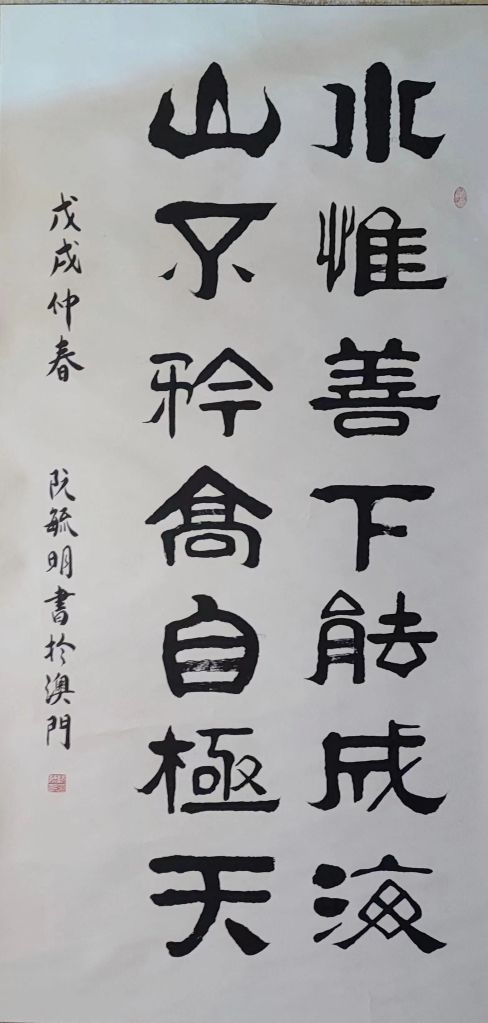 水惟善下能成海
山不矜高自極天
戊戌仲春 阮毓明書於澳門